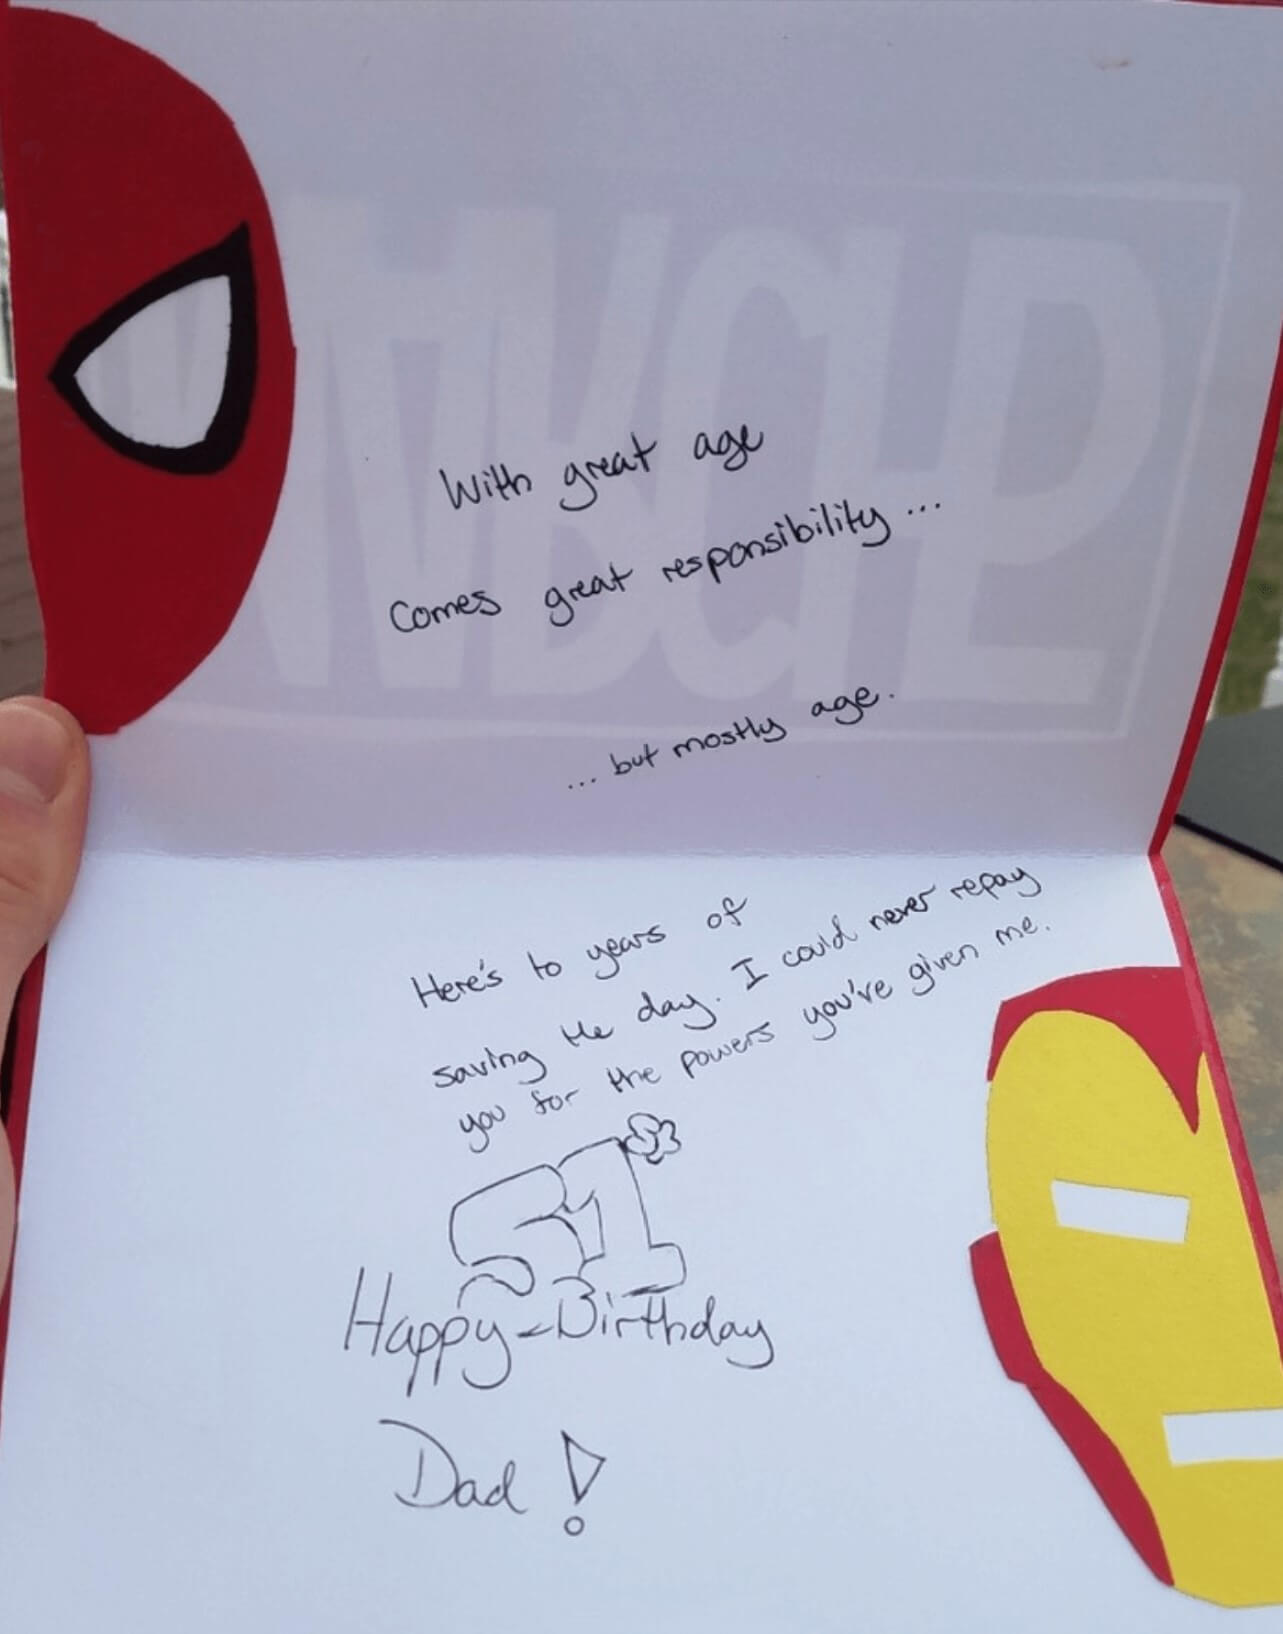 With great age
Comes great responsibility...
...but mostly age.
Here's to years of
saving the day. I could never repay
you for the powers you've given me.
51
Happy-Birthday
Dad!